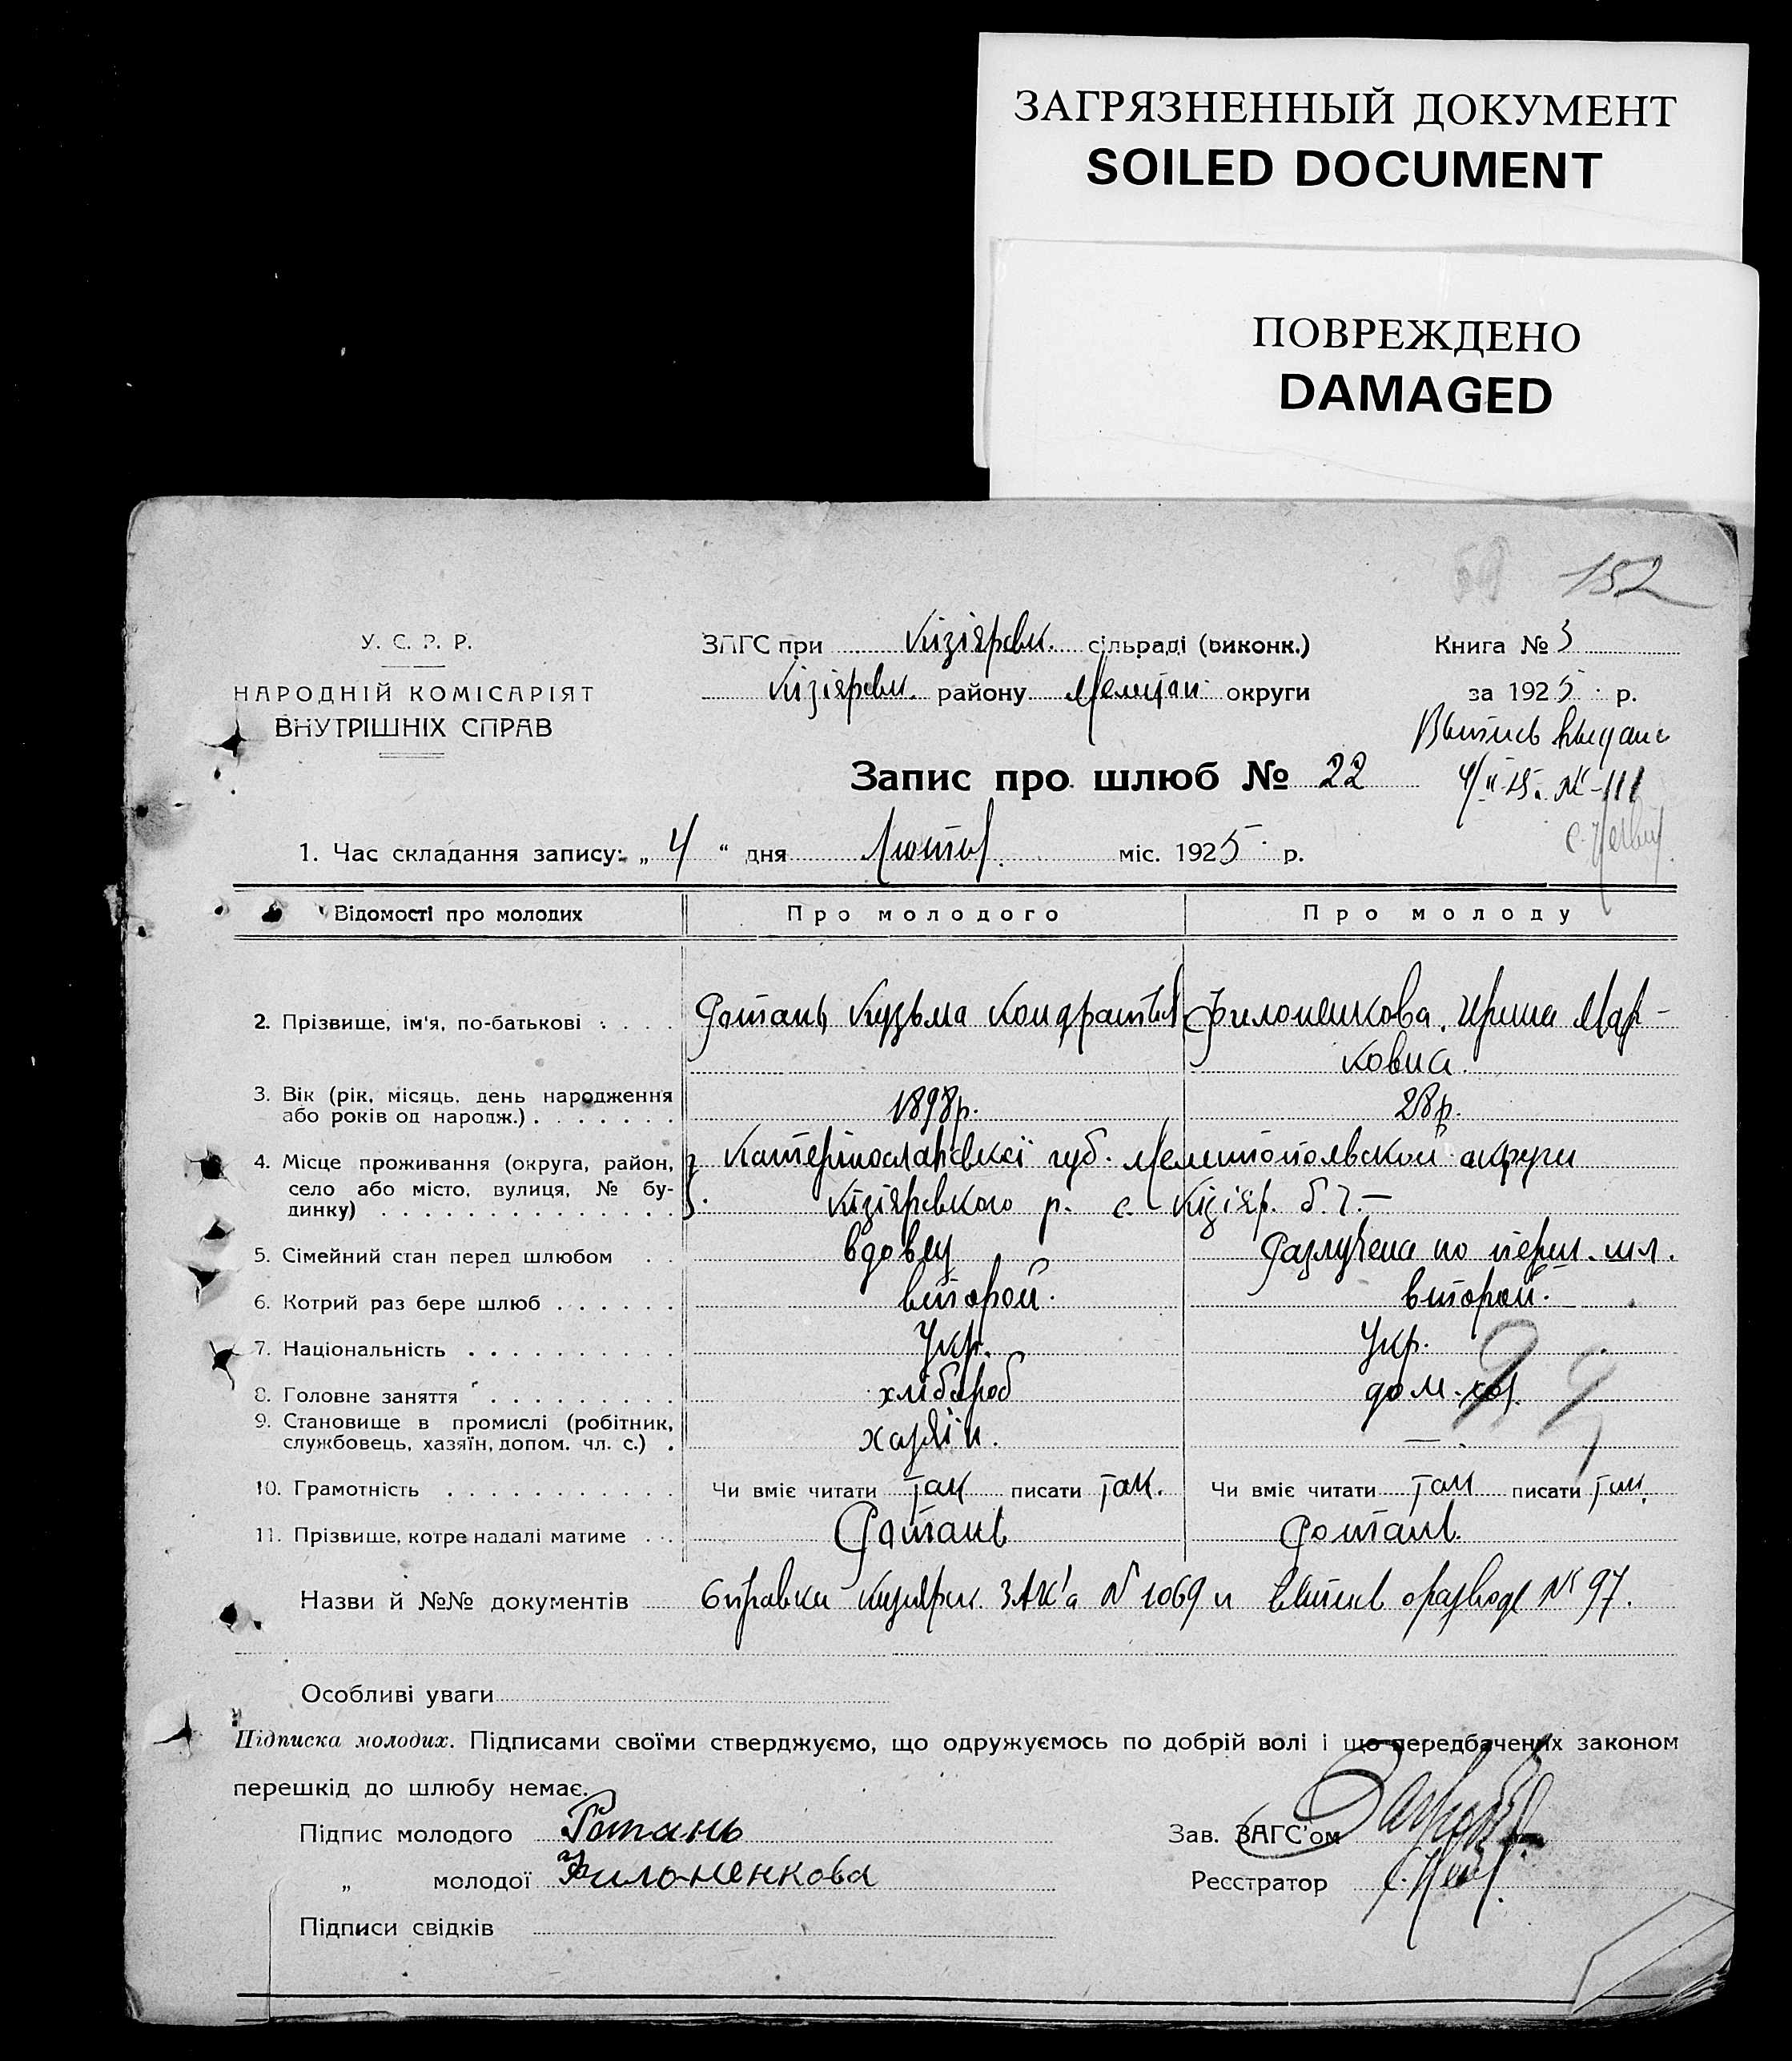 ЗАГРЯЗНЕННЫЙ ДОКУМЕНТ
SOILED DOCUMENT
ПОВРЕЖДЕНО
DAMAGED
152
У. С. Р. Р.
НАРОДНІЙ КОМІСАРІЯТ
ВНУТРІШНІХ СПРАВ
ЗАГС при Кізіярськ. сільраді (виконк.)
Кізіярськ. району Мелітоп. округи
Книга № 3
за 1925 р.
Выпись выдана
4/II-25. № 111
Запис про шлюб № 22
1. Час складання запису: „ 4 “ дня Лютого міс. 1925 р.
Відомості про молодих Про молодого Про молоду
2. Прізвище, ім'я, по-батькові Ротань Кузьма Кондратьев Филоненкова. Ирина Мар-
ковна.
3. Вік (рік, місяць, день народження
або років од народж.) 1898р. 28р.
4. Місце проживання (округа, район,
село або місто, вулиця, № бу-
динку)
Катеринославської губ. Мелитопольской округи
Кізіярського р. с. Кізіяр. б. г. —
5. Сімейний стан перед шлюбом вдовец Разлучена по перш. шл.
6. Котрий раз бере шлюб второй. второй.
7. Національність Укр. Укр.
8. Головне заняття хлібороб дом. хоз.
9. Становище в промислі (робітник,
службовець, хазяїн, допом. чл. с.) хазяін. —
10. Грамотність Чи вміє читати так писати так. Чи вміє читати так писати так.
11. Прізвище, котре надалі матиме Ротань Ротань.
Назви й №№ документів Справки Кизиярск. ЗАГС'а № 1069 и выпись о разводе № 97.
Особливі уваги
Підписка молодих. Підписами своїми стверджуємо, що одружуємось по добрій волі і що передбачених законом
перешкід до шлюбу немає.
Підпис молодого Ротань
Зав. ЗАГС'ом
„ молодої Филоненкова
Реєстратор
Підписи свідків